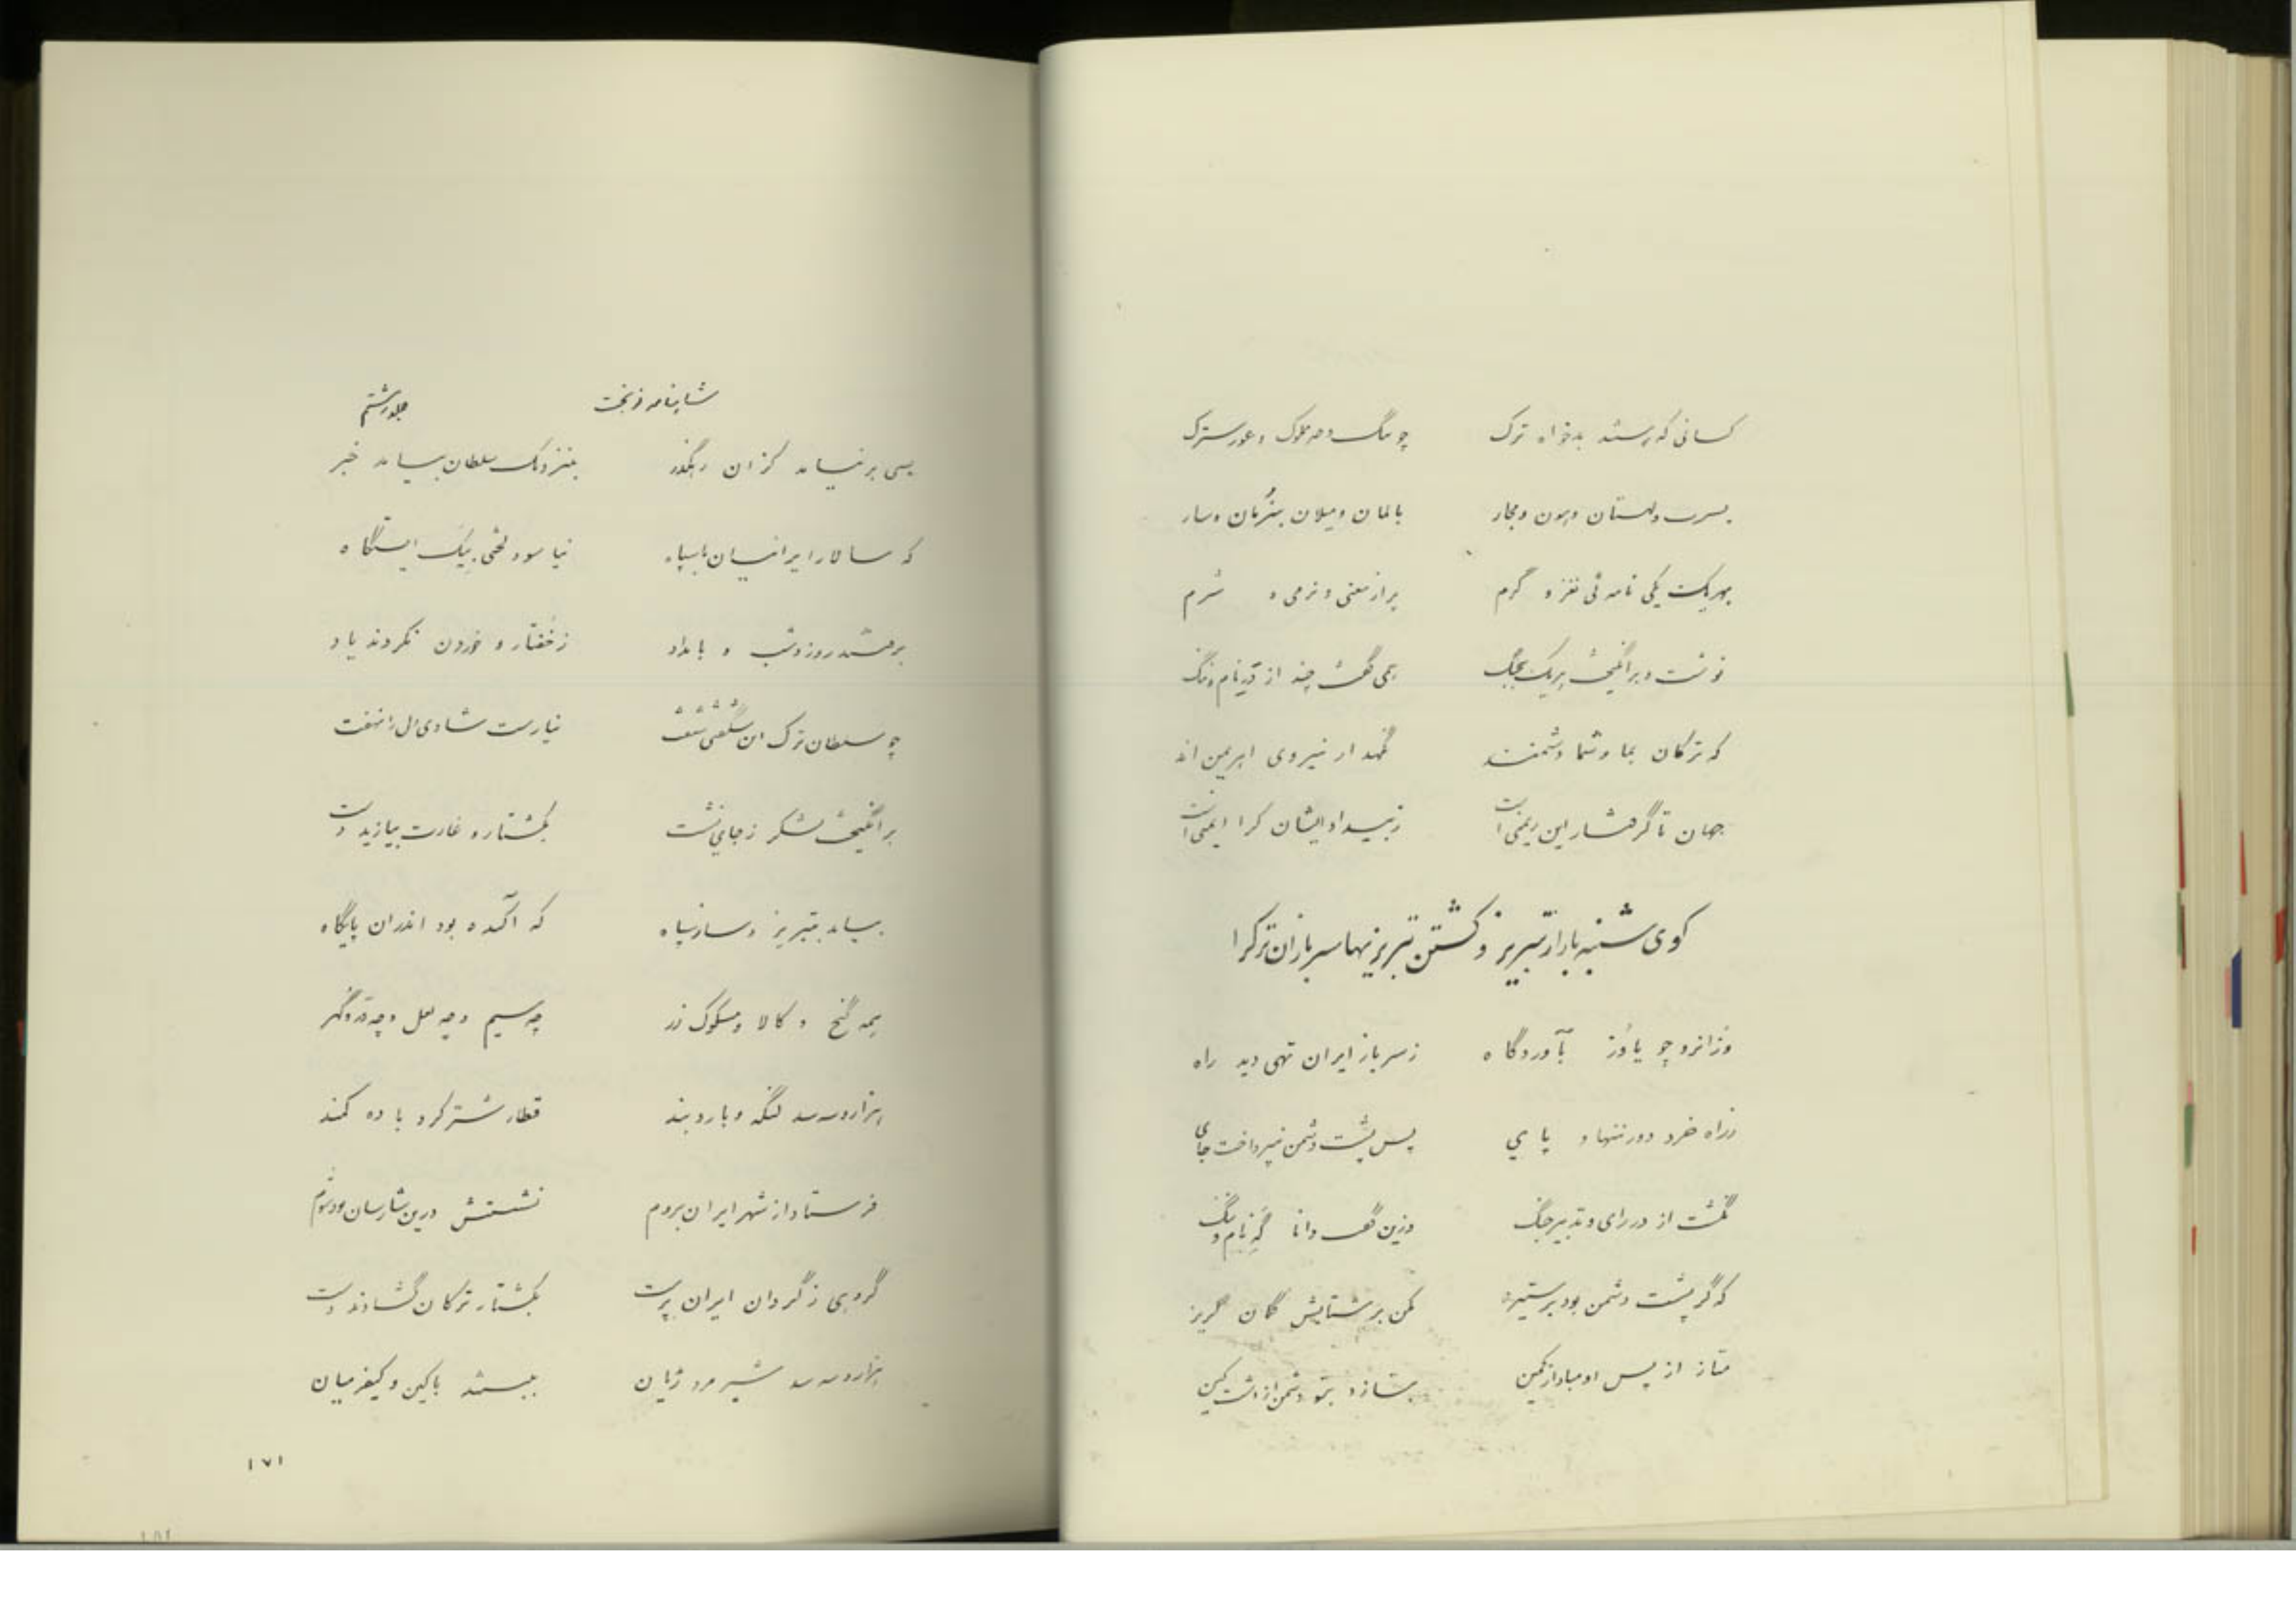 کسانی که بستند بدخواه ترک چو سگ و ملوک و سترک
بصرب و لهستان و هون و مجار بالمان و میلان و سار
بهریک یکی نامه ئی نغز و گرم پر از معنی و نرمی و شرم
نوشت و برانگیخت هریک بجنگ همی گفت چند از در نام و ننگ
که ترکان بما و شما دشمنند نگهدار نیروی اهریمن اند
جهان تا گرفتار این ریمنی است ز بیداد ایشان کرا ایمنی است
کوی شنبه بازار تبریز و کشتن تبریزیها سربازان ترک را
وزانرو چو یاوز بآوردگاه ز سرباز ایران تهی دید راه
ز راه خرد دور ننهاد پای پس پشت دشمن نپرداخت جای
گذشت از در رای و تدبیر جنگ وزین گفت دانا که نام و ننگ
که گر پشت دشمن بود بر ستیز مکن بر شتابش گمان گریز
متاز از پس او مبادا ز کمین بتازد بتو دشمن از دشت کین
شاهنامه نوبخت جلد هشتم
بسی برنیامد کزان رهگذر بنزدیک سلطان بیامد خبر
که سالار ایرانیان با سپاه نیاسود لختی بیک ایستگاه
برفتند روز و شب و بامداد ز خفتار و خوردن نکردند یاد
چو سلطان ترک این شگفتی شنفت نیارست شادی دل را نهفت
برانگیخت لشکر ز جای نشست بکشتار و غارت بیازید دست
بیامد بتبریز و ساز سپاه که آکنده بود اندران پایگاه
همه گنج و کالا و مسکوک زر چه سیم و چه لعل و چه در و گهر
هزار و سه سد لنگه و بار و بند قطار شتر کرد با ده کمند
فرستاد از شهر ایران بروم نشستنش درین شارسان بود شوم
گروهی ز گردان ایران پرست بکشتار ترکان گشادند دست
هزار و سه سد شیر مرد ژیان ببستند با کین و کیفر میان
۱۷۱